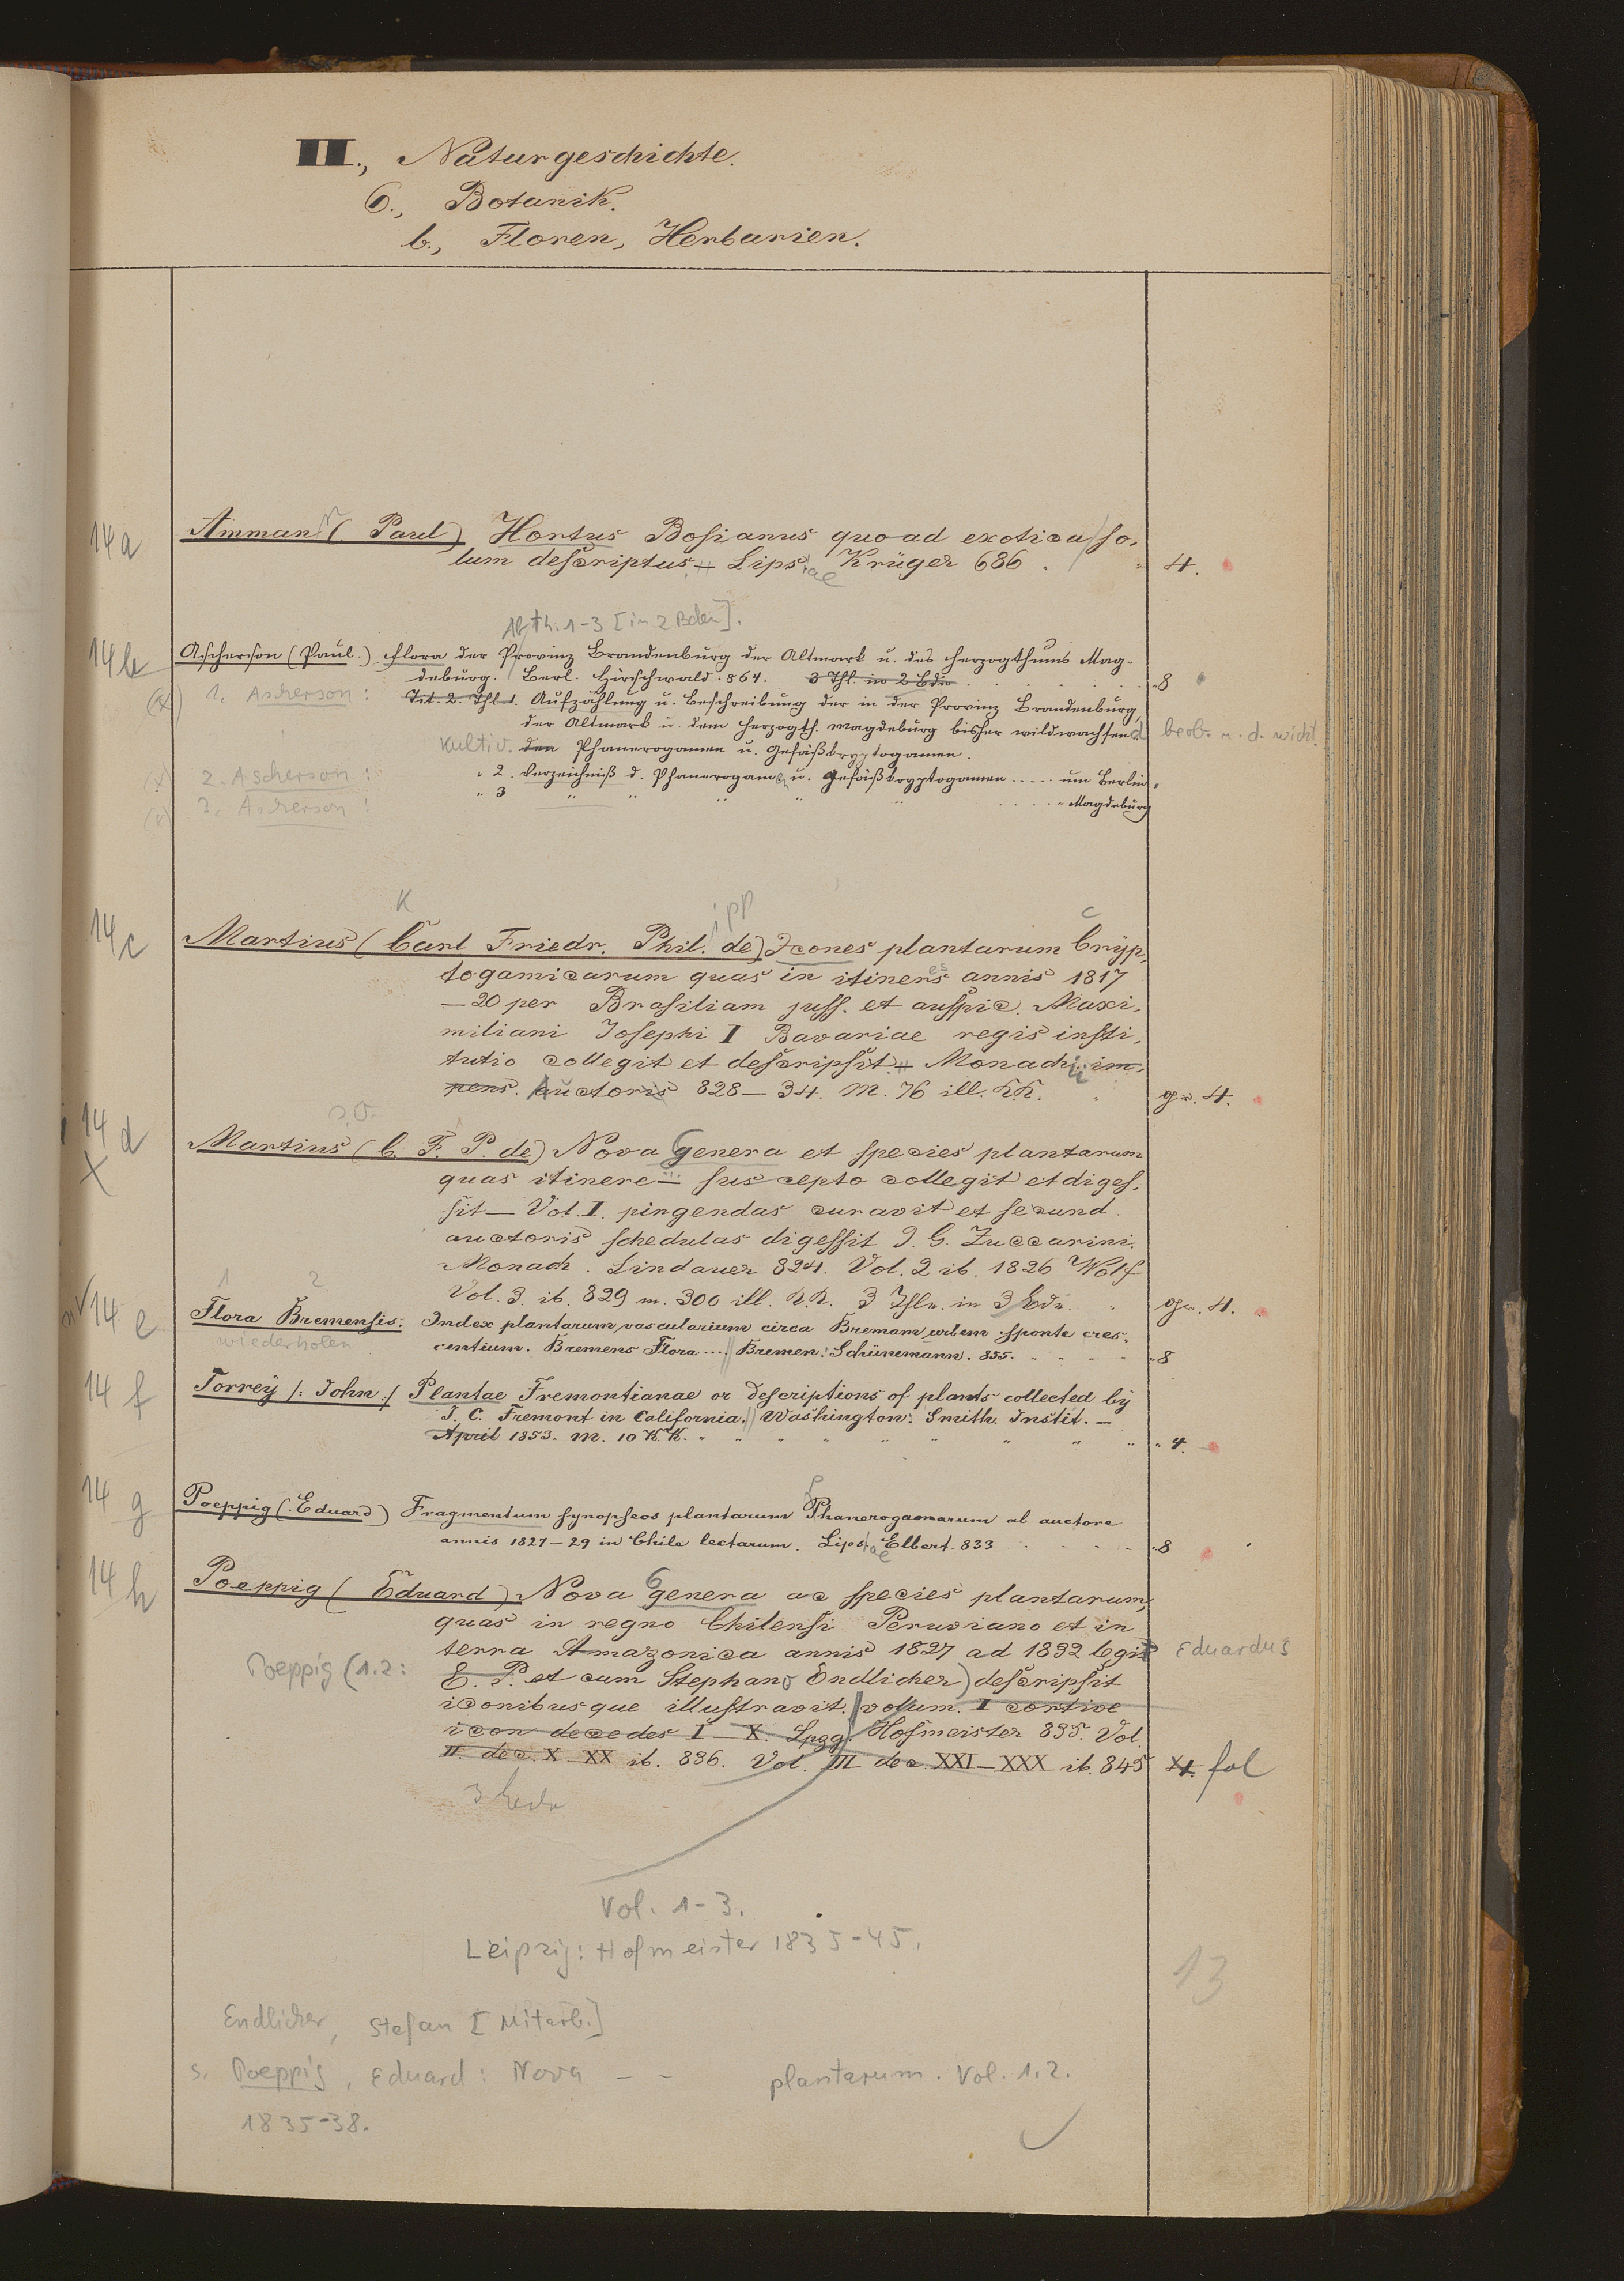 III., Naturgeschichte.
6., Botanik.
b., Floren, Herbarien.
14a Amman (Paul) Hortus Bosianus quoad exotica so,
lum descriptus. Lips. Krüger 686. 4.
Abth. 1-3 [in 2 Bden].
14b Ascherson (Paul.) Flora der Provinz Brandenburg der Altmark u. des Herzogthums Mag-
deburg. Berl. Hirschwald. 864. 3 Thl. in 2 Bdn 8
1. Ascherson: Tit. 2. Thl. 1. Aufzählung u. Beschreibung der in der Provinz Brandenburg,
der Altmark u. dem Herzogth. Magdeburg bisher wildwachsend beob. u. d. wicht.
kultiv. den Phanerogamen u. Gefäßkryptogamen.
2. Ascherson: " 2. Verzeichniß d. Phanerogamen u. Gefäßkryptogamen ..... um Berlin
3. Ascherson: " 3 " " " " " ..... " Magdeburg
K ipp c
14c Martius (Carl Friedr. Phil. de) Icones plantarum Cryp,
togamicarum quas in itinere annis 1817
—20 per Brasiliam juss. et auspic. Maxi,
miliani Josephi I Bavariae regis insti,
tutio collegit et descripsit. Monachii im,
pens. Auctoris 828—34. M. 76 ill. KK. gr. 4.
14d Martius (C. F. P. de) Nova Genera et species plantarum
X quas itinere — suscepto collegit et diges,
sit — Vol. I. pingendas curavit et secund.
auctoris schedulas digessit J. G. Zuccarini.
Monach. Lindauer 824. Vol. 2 ib. 1826 Wolf
Vol. 3. ib. 829 m. 300 ill. KK. 3 Thle. in 3 Bdn. gr. 4.
1 2
14e Flora Bremensis: Index plantarum vascularium circa Bremam urbem sponte cres,
wiederholen centium. Bremens Flora .... Bremen: Schünemann. 855. 8
14f Torrey /: John :/ Plantae Fremontianae or descriptions of plants collected by
J. C. Fremont in California. Washington: Smith. Instit. —
April 1853. m. 10 KK. 4.
14g Poeppig (Eduard) Fragmentum synopseos plantarum Phanerogamarum ab auctore
annis 1827—29 in Chile lectarum. Lipsiae Elbert. 833 8
14h Poeppig (Eduard) Nova Genera ac species plantarum,
quas in regno Chilensi Peruviano et in
terra Amazonica annis 1827 ad 1832 legit Eduardus
Poeppig (1.2: E. P. et cum Stephano Endlicher) descripsit
iconibusque illustravit. volum. I cortive
icon decedes I—X. Lpzg. Hofmeister 835. Vol.
II. dec. X—XX ib. 836. Vol. III dec. XXI—XXX ib. 845 4. fol
3 Bde
Vol. 1-3.
Leipzig: Hofmeister 1835-45.
13
Endlicher, Stefan [Mitarb.]
s. Poeppig, Eduard: Nova - - plantarum. Vol. 1.2.
1835-38.